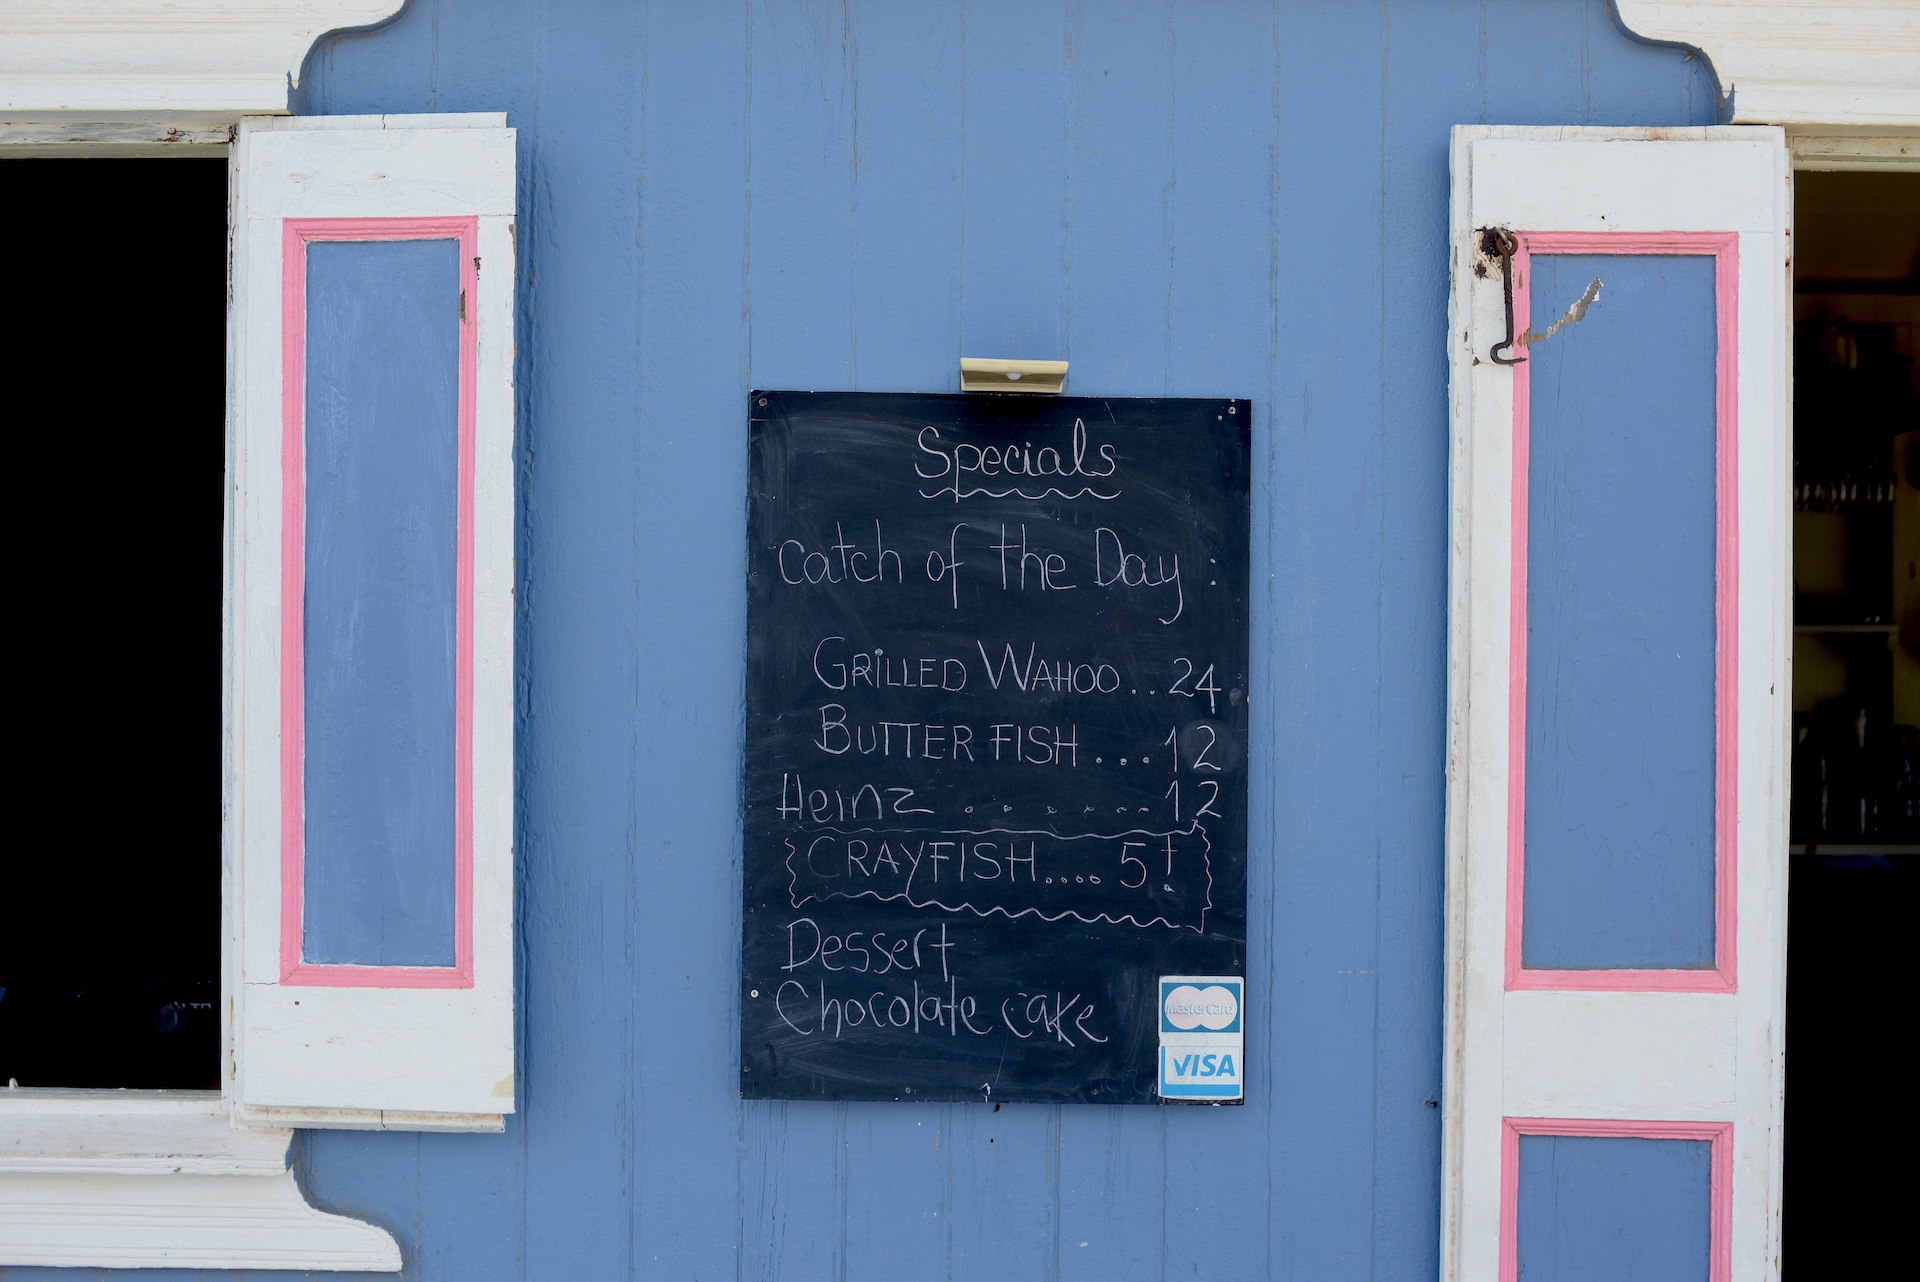 Specials
Catch of the Day :
GRILLED WAHOO .. 24
BUTTER FISH .... 12
Heinz ........ 12
CRAYFISH .... 5!
Dessert
Chocolate cake
MasterCard
VISA